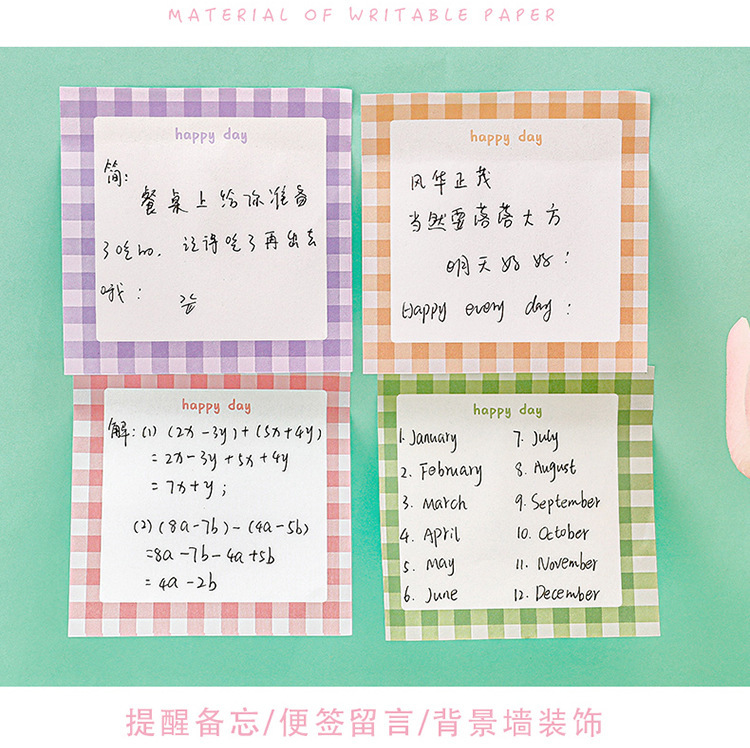 MATERIAL OF WRITABLE PAPER
happy day
简:
餐桌上给你准备
了吃的. 记得吃了再出去
哦:
happy day
风华正茂
当然要落落大方
明天好好!
Happy every day:
happy day
解:(1) (2x-3y)+(5x+4y)
=2x-3y+5x+4y
=7x+y;
(2)(8a-7b)-(4a-5b)
=8a-7b-4a+5b
=4a-2b
happy day
1. January
2. February
3. March
4. April
5. May
6. June
7. July
8. August
9. September
10. October
11. November
12. December
提醒备忘/便签留言/背景墙装饰